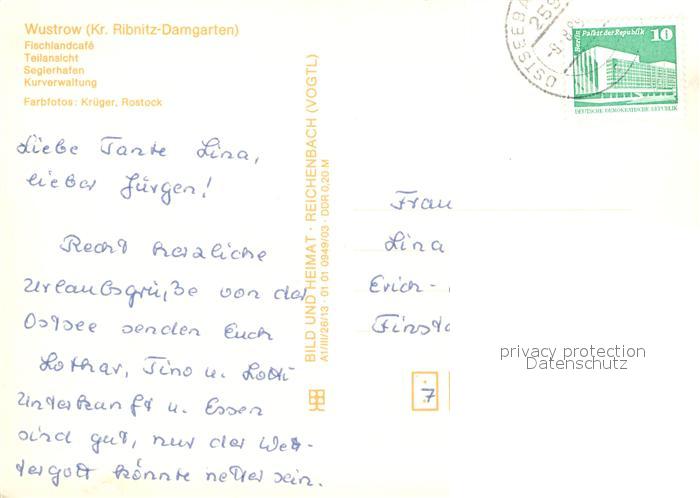 Wustrow (Kr. Ribnitz-Damgarten)
Fischlandcafé
Teilansicht
Seglerhafen
Kurverwaltung
Farbfotos: Krüger, Rostock
Liebe Tante Lina,
lieber Jürgen!
Recht herzliche
Urlaubsgrüße von der
Ostsee senden Euch
Lothar, Tino u. Lotti
Unterkunft u. Essen
sind gut, nur der Wet-
tergott könnte netter sein.
BILD UND HEIMAT · REICHENBACH (VOGTL)
A1/III/26/13 · 01 01 0949/03 · DDR 0,20 M
OSTSEEBA
255
Berlin Palast der Republik
10
DEUTSCHE DEMOKRATISCHE REPUBLIK
Frau
Lina
Erich-
Finst
7
privacy protection
Datenschutz